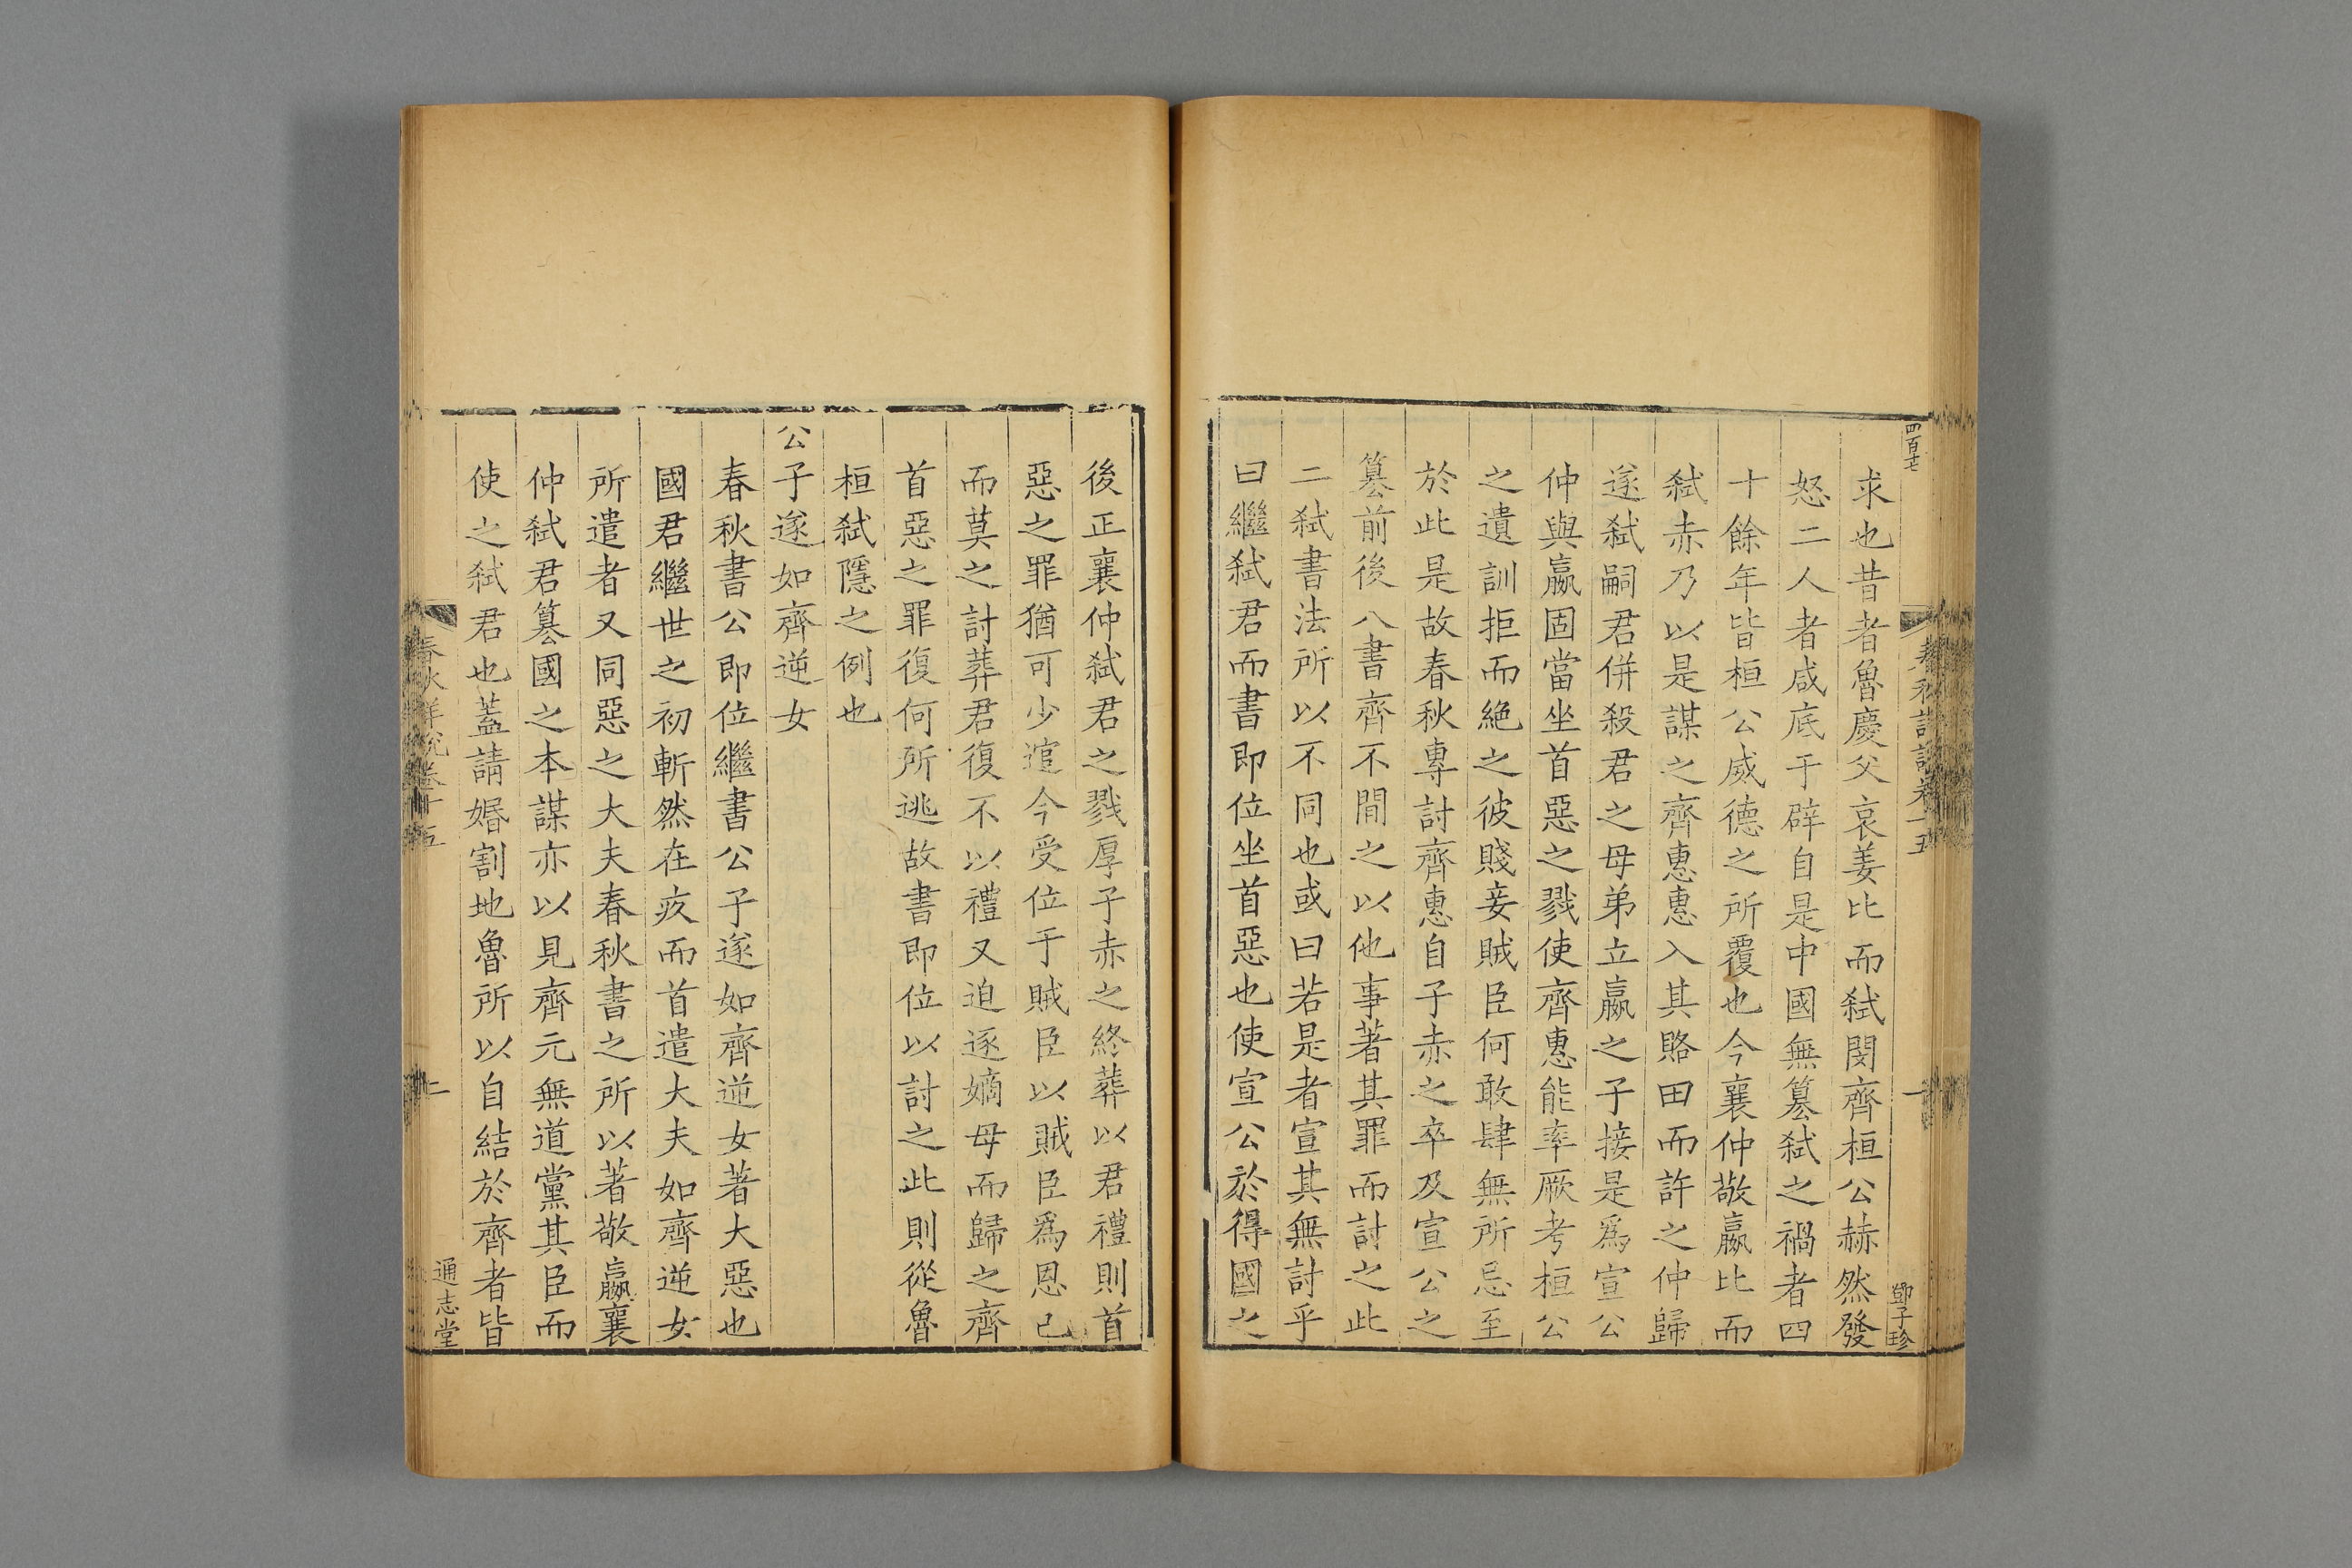 四百十七
春秋詳說卷十五
一
鄧子珍
求也昔者魯慶父哀姜比而弑閔齊桓公赫然發
怒二人者咸底于辟自是中國無篡弑之禍者四
十餘年皆桓公威德之所覆也今襄仲敬嬴比而
弑赤乃以是謀之齊惠惠入其賂田而許之仲歸
遂弑嗣君併殺君之母弟立嬴之子接是爲宣公
仲與嬴固當坐首惡之戮使齊惠能率厥考桓公
之遺訓拒而絶之彼賤妾賊臣何敢肆無所忌至
於此是故春秋專討齊惠自子赤之卒及宣公之
篡前後八書齊不間之以他事著其罪而討之此
二弑書法所以不同也或曰若是者宣其無討乎
曰繼弑君而書即位坐首惡也使宣公於得國之
後正襄仲弑君之戮厚子赤之終葬以君禮則首
惡之罪猶可少逭今受位于賊臣以賊臣爲恩己
而莫之討葬君復不以禮又迫逐嫡母而歸之齊
首惡之罪復何所逃故書即位以討之此則從魯
桓弑隱之例也
公子遂如齊逆女
春秋書公即位繼書公子遂如齊逆女著大惡也
國君繼世之初斬然在疚而首遣大夫如齊逆女
所遣者又同惡之大夫春秋書之所以著敬嬴襄
仲弑君篡國之本謀亦以見齊元無道黨其臣而
使之弑君也蓋請婚割地魯所以自結於齊者皆
春秋詳說卷十五
二
通志堂